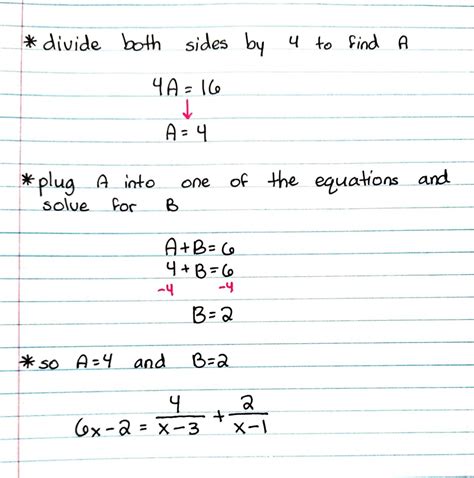 * divide both sides by 4 to find A
4A = 16
↓
A = 4
* plug A into one of the equations and
solve for B
A+B=6
4+B=6
-4 -4
B=2
* so A=4 and B=2
6x-2 = 4/(x-3) + 2/(x-1)